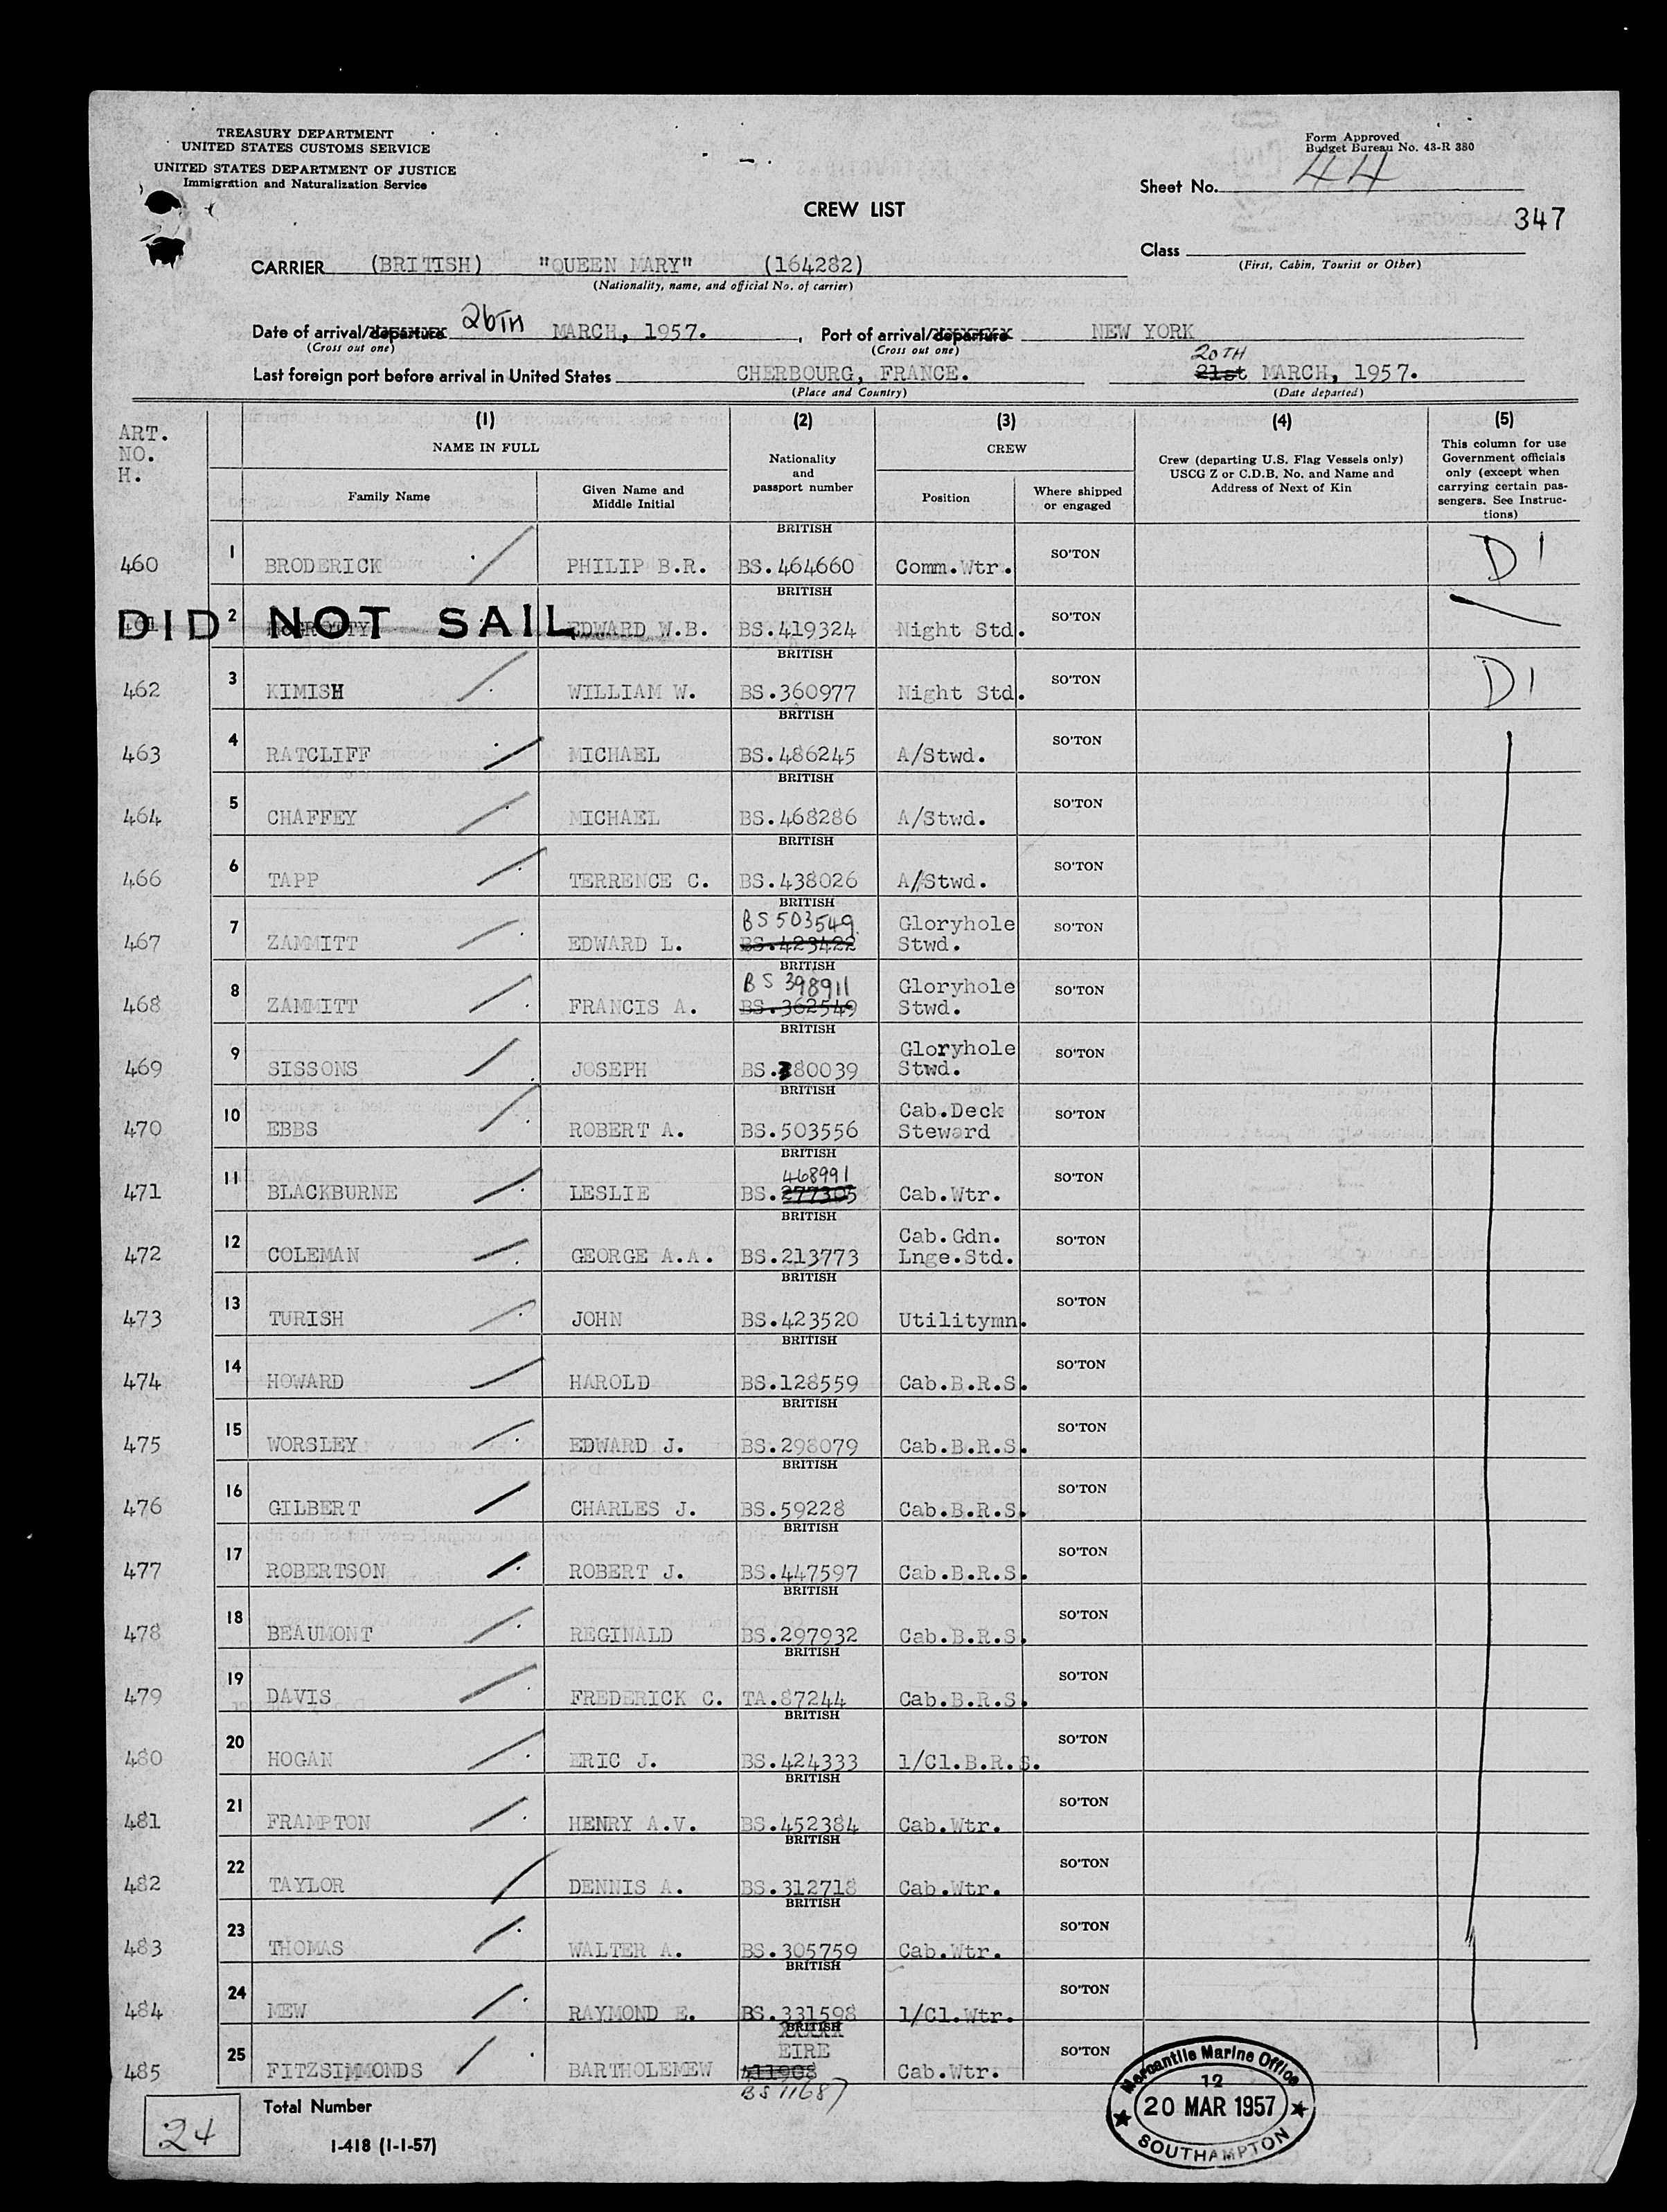 TREASURY DEPARTMENT
UNITED STATES CUSTOMS SERVICE
UNITED STATES DEPARTMENT OF JUSTICE
Immigration and Naturalization Service
Form Approved
Budget Bureau No. 43-R 380
Sheet No. 44
CREW LIST
347
Class
(First, Cabin, Tourist or Other)
CARRIER (BRITISH) "QUEEN MARY" (164282)
(Nationality, name, and official No. of carrier)
Date of arrival/departure 26TH MARCH, 1957. , Port of arrival/departure NEW YORK
(Cross out one) (Cross out one)
20TH
Last foreign port before arrival in United States CHERBOURG, FRANCE. 21st MARCH, 1957.
(Place and Country) (Date departed)
ART. NO. H.
(1) NAME IN FULL
Family Name
Given Name and Middle Initial
(2) Nationality and passport number
(3) CREW
Position
Where shipped or engaged
(4) Crew (departing U.S. Flag Vessels only) USCG Z or C.D.B. No. and Name and Address of Next of Kin
(5) This column for use Government officials only (except when carrying certain passengers. See Instructions)
BRITISH
460 1 BRODERICK PHILIP B.R. BS.464660 Comm.Wtr. SO'TON D1
BRITISH
DID NOT SAIL
461 2 EDWARD W.B. BS.419324 Night Std. SO'TON
BRITISH
462 3 KIMISH WILLIAM W. BS.360977 Night Std. SO'TON D1
BRITISH
463 4 RATCLIFF MICHAEL BS.486245 A/Stwd. SO'TON
BRITISH
464 5 CHAFFEY MICHAEL BS.468286 A/Stwd. SO'TON
BRITISH
466 6 TAPP TERRENCE C. BS.438026 A/Stwd. SO'TON
BRITISH
BS 503549
467 7 ZAMMITT EDWARD L. BS.423422 Gloryhole Stwd. SO'TON
BRITISH
BS 398911
468 8 ZAMMITT FRANCIS A. BS.362549 Gloryhole Stwd. SO'TON
BRITISH
469 9 SISSONS JOSEPH BS.380039 Gloryhole Stwd. SO'TON
BRITISH
470 10 EBBS ROBERT A. BS.503556 Cab.Deck Steward SO'TON
BRITISH
468991
471 11 BLACKBURNE LESLIE BS.277305 Cab.Wtr. SO'TON
BRITISH
472 12 COLEMAN GEORGE A.A. BS.213773 Cab.Gdn. Lnge.Std. SO'TON
BRITISH
473 13 TURISH JOHN BS.423520 Utilitymn. SO'TON
BRITISH
474 14 HOWARD HAROLD BS.128559 Cab.B.R.S. SO'TON
BRITISH
475 15 WORSLEY EDWARD J. BS.298079 Cab.B.R.S. SO'TON
BRITISH
476 16 GILBERT CHARLES J. BS.59228 Cab.B.R.S. SO'TON
BRITISH
477 17 ROBERTSON ROBERT J. BS.447597 Cab.B.R.S. SO'TON
BRITISH
478 18 BEAUMONT REGINALD BS.297932 Cab.B.R.S. SO'TON
BRITISH
479 19 DAVIS FREDERICK C. TA.87244 Cab.B.R.S. SO'TON
BRITISH
480 20 HOGAN ERIC J. BS.424333 1/Cl.B.R.S. SO'TON
BRITISH
481 21 FRAMPTON HENRY A.V. BS.452384 Cab.Wtr. SO'TON
BRITISH
482 22 TAYLOR DENNIS A. BS.312718 Cab.Wtr. SO'TON
BRITISH
483 23 THOMAS WALTER A. BS.305759 Cab.Wtr. SO'TON
BRITISH
484 24 MEW RAYMOND E. BS.331598 1/Cl.Wtr. SO'TON
BRITISH
EIRE
485 25 FITZSIMMONDS BARTHOLEMEW 411908 Cab.Wtr. SO'TON
BS 11687
24
Total Number
I-418 (1-1-57)
Mercantile Marine Office
12
20 MAR 1957
SOUTHAMPTON